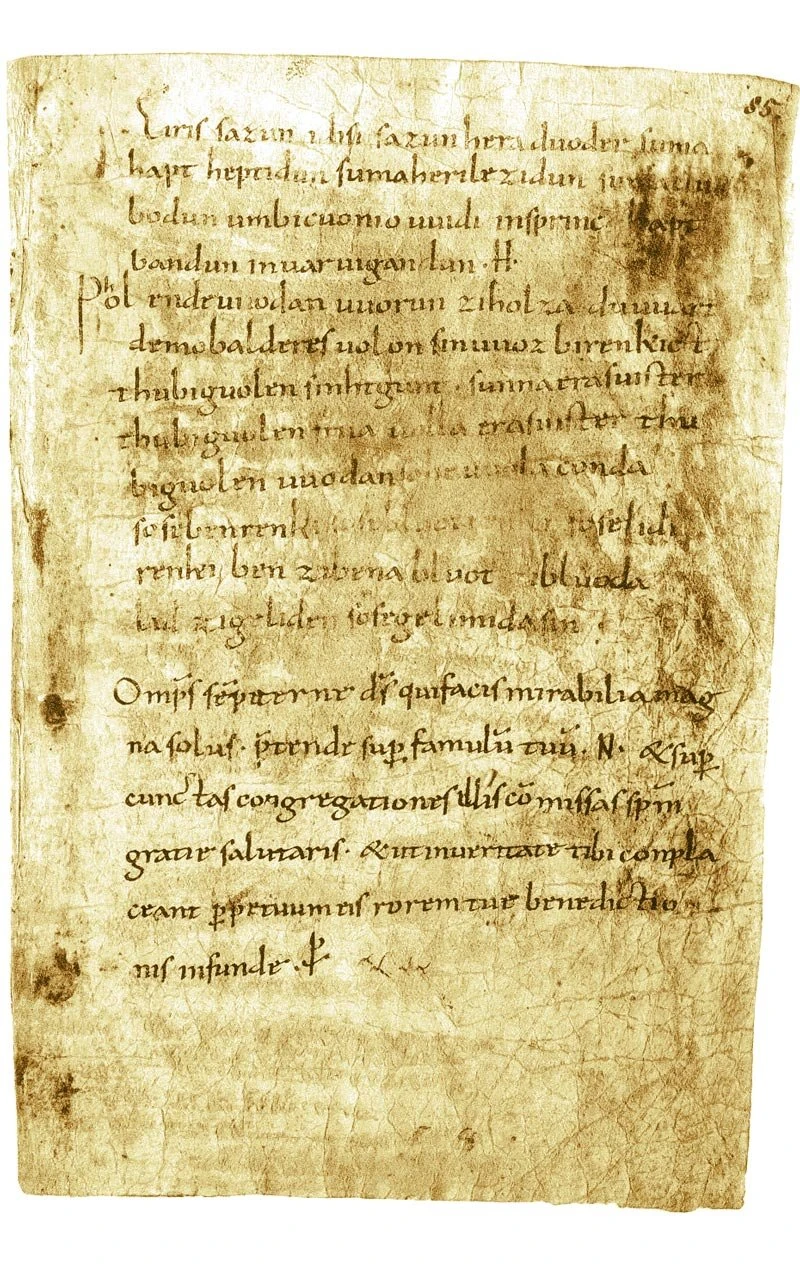 85
Eiris sazun idisi sazun hera duoder suma
hapt heptidun sumaherilezidun suma
bodun umbicuonio uuidi insprinc hapt
bandun inuaruigandun · H ·
Phol endeuuodan uuorun ziholza du uuart
demobalderes uolon sinuuoz birenkict
thubiguolen sinhtgunt · sunnaerasuister
thubiguolen friia uolla erasuister thu
biguolen uuodan sohe uuolaconda
sosebenrenki sose bluotrenki soselidi
renki ben zibena bluot zibluoda
lid zigeliden sosegelimidasin ·
Omp̄s sēpiterne ds̄ quifacis mirabilia mag
na solus · p̄tende sup̱ famulū tuū · N · &sup̱
cunctas congregationes illis cō missas spm̄
gratie salutaris · &utinueritate tibi conpla
ceant p̱petuum eis rorem tue benedictio
nis infunde · p̱